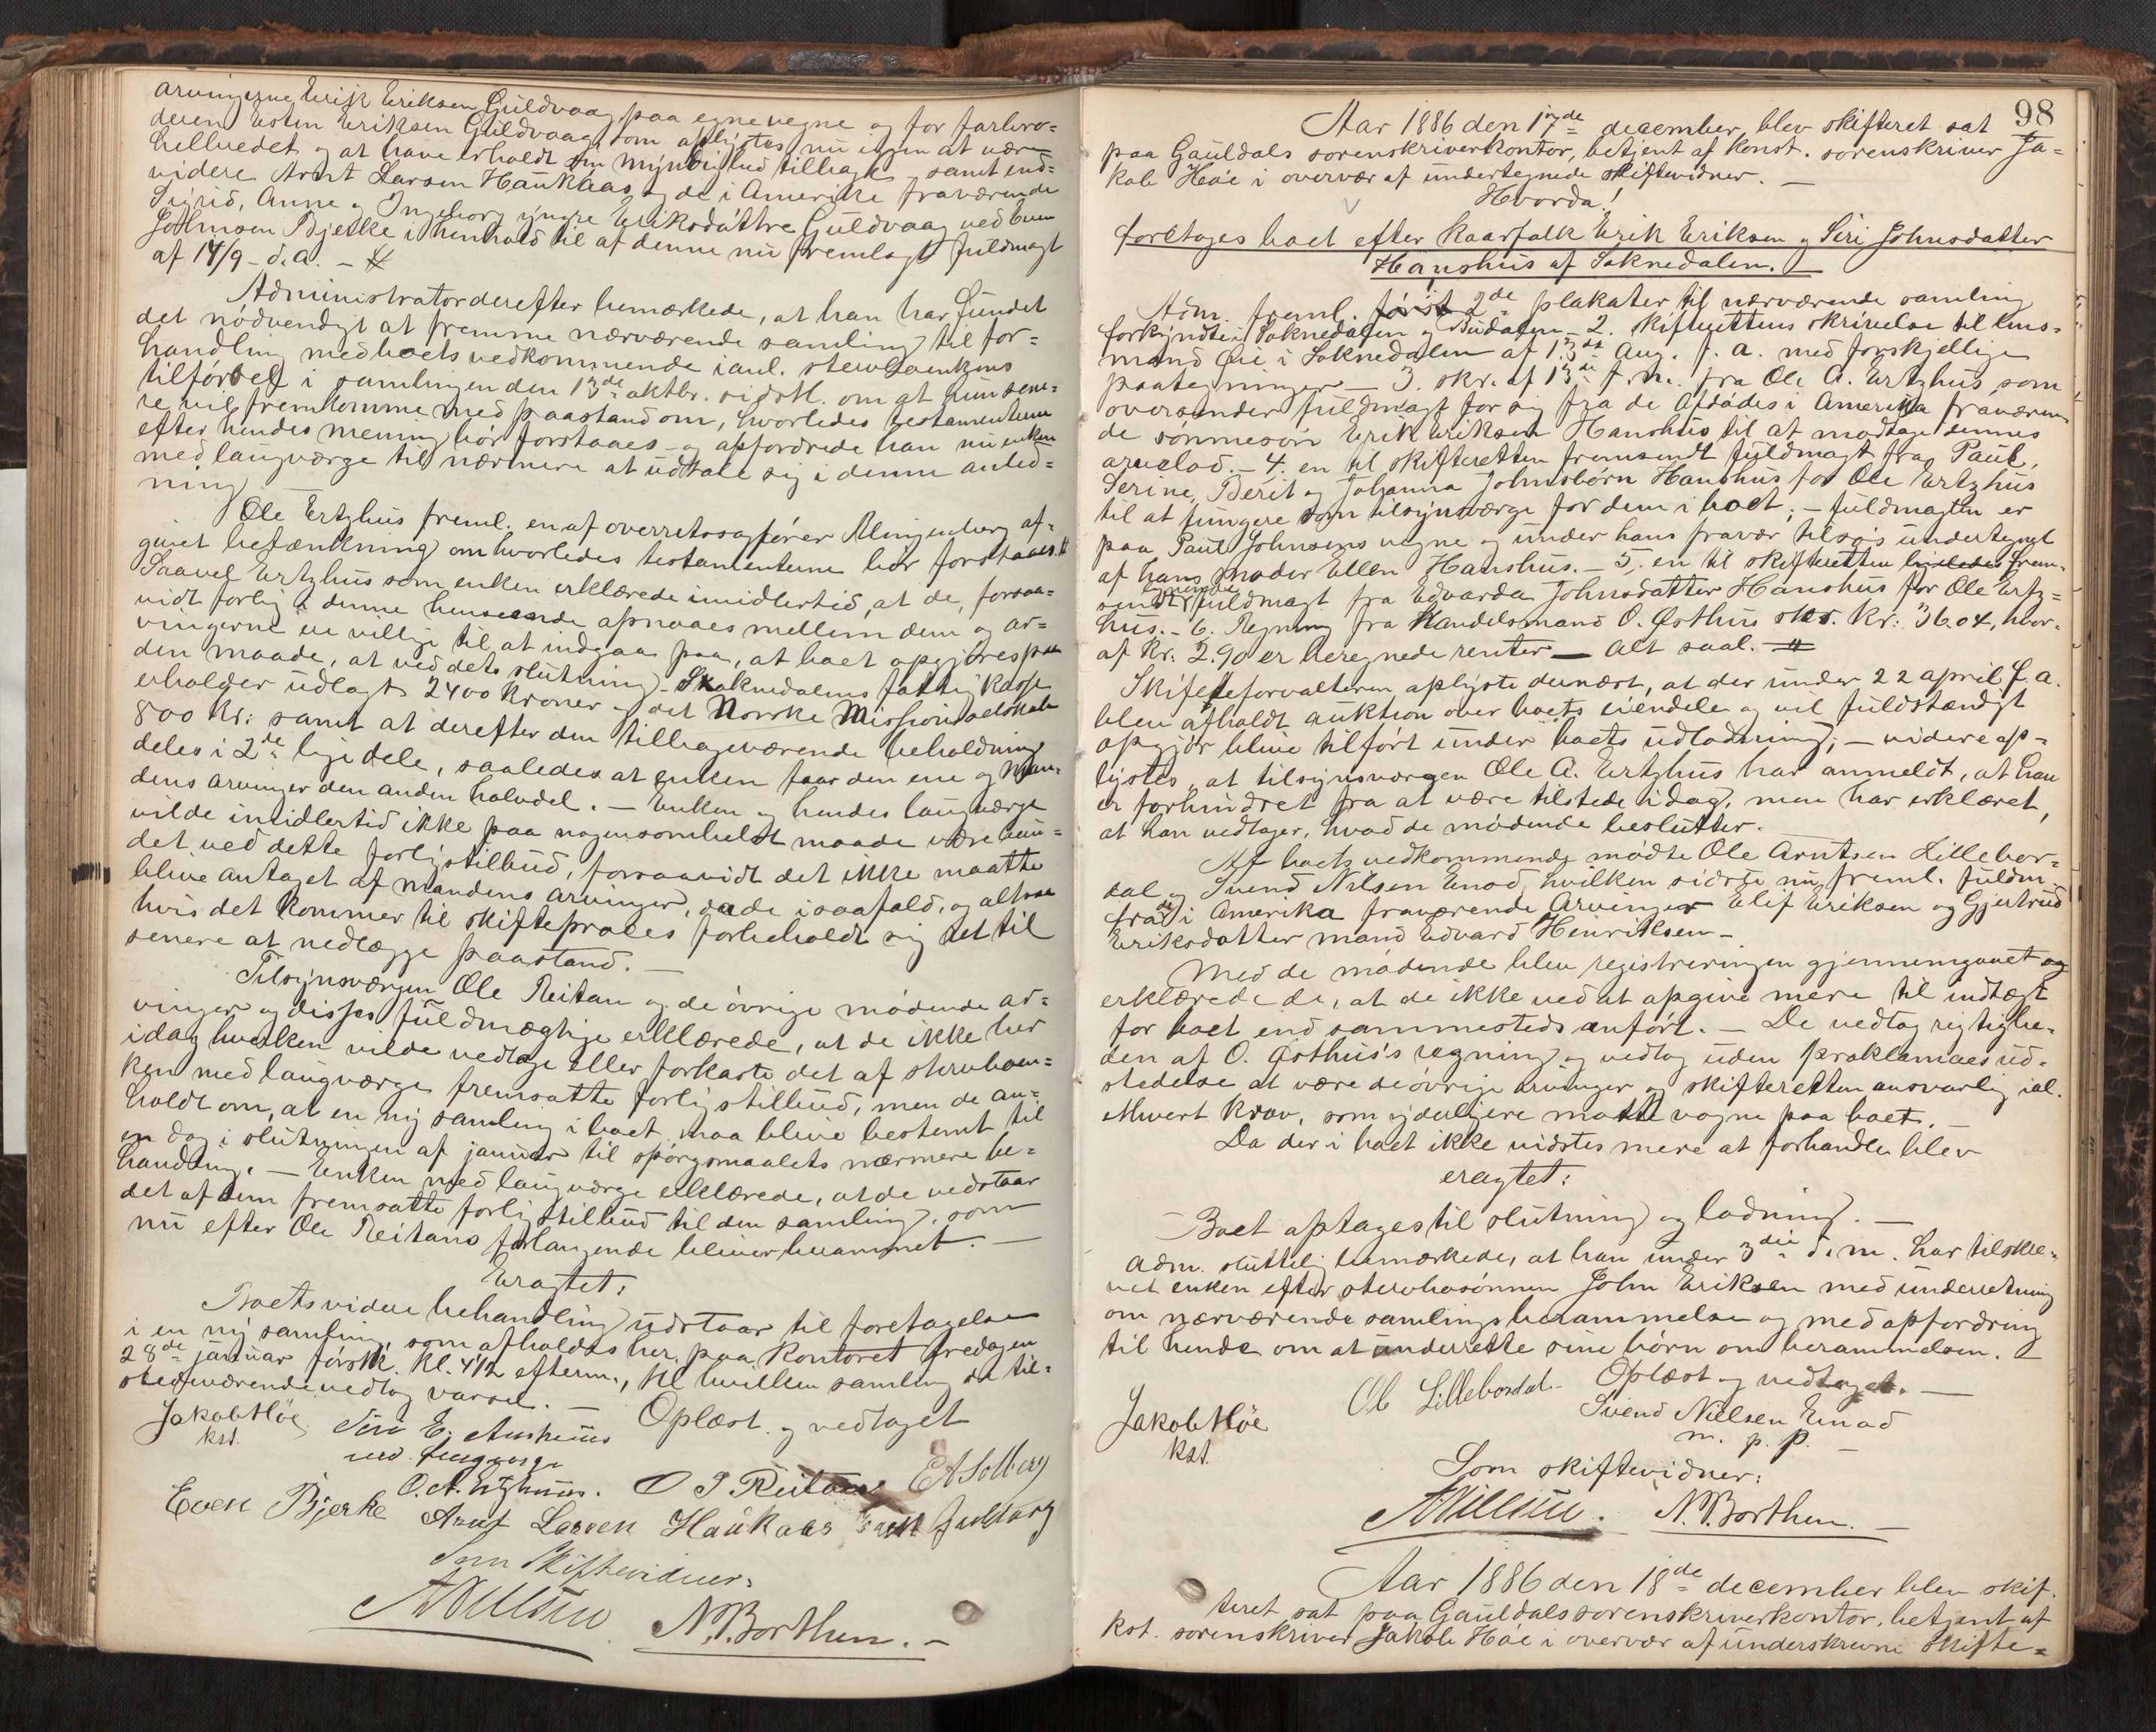 arvingerne Erik Eriksen Guldvaag paa egne vegne og for farbro-
deren Esten Eriksen Guldvaag, som oplystes nu igjen at være
helbredet og at have erholdt sin myndighed tilbage, samt end-
videre Arnt Larsen Haukaas og de i Amerika fraværende
Sigrid, Anne og Ingeborg yngre Eriksdøttre Guldvaag ved Even
Johnsen Bjerke i henhold til af denne nu fremlagt fuldmagt
af 14/9 d. a. —
Administrator derefter bemærkede, at han har fundet
det nødvendigt at fremme nærværende samling til for-
handling med boets vedkommende i anl. sterboenkens
tilførsel i samlingen den 13de oktbr. sidstl. om at hun sene-
re vil fremkomme med paastand om, hvorledes testamentern
efter hendes mening bør forstaaes og opfordrede han nu enken
med laugværge til nærmere at udtale sig i denne anled-
ning.
Ole Ertzhus freml. en af overretssagfører Klingenberg af-
givet betænkning om hvorledes testamenterne bør forstaaes.
Saavel Ertzhus som enken erklærede imidlertid, at de, forsaa-
vidt forlig i denne henseende opnaaes mellem dem og ar-
vingerne er villige til at indgaa paa, at boet opgjøres paa
den maade, at ved dets slutning Soknedalens fattigkasse
erholder udlagt 2400 kroner og det Norske Missionsselskab
800 kr. samt at derefter den tilbageværende beholdning
deles i 2de lige dele, saaledes at enken faar den ene og man-
dens arvinger den anden halvdel. — Enken og hendes laugværge
vilde imidlertid ikke paa nogensomhelst maade være bun-
det ved dette forligstilbud, forsaavidt det ikke maatte
blive antaget af mandens arvinger, da de i saafald, og altsaa
hvis det kommer til skifteproces forbeholdt sig ret til
senere at nedlægge paastand. —
Tilsynsværgen Ole Reitan og de øvrige mødende ar-
vinger og disses fuldmægtige erklærede, at de ikke her
idag hverken vilde vedtage eller forkaste det af sterboen-
ken med laugværge fremsatte forligstilbud, men de an-
holdt om, at en ny samling i boet maa blive bestemt til
en dag i slutningen af januar til spørgsmaalets nærmere be-
handling. — Enken med laugværge erklærede, at de vedstaar
det af dem fremsatte forligstilbud til den samling, som
nu efter Ole Reitans forlangende bliver berammet. —
Eragtet:
Boets videre behandling udstaar til foretagelse
i en ny samling, som afholdes her paa kontoret fredagen
28de januar førstk. kl. 4 1/2 efterm., til hvilken samling de til-
stedeværende vedtog varsel. — Oplæst og vedtaget
Jakob Høe
kst.
Siri E.
med laugværge
O. A. Ertzhus. O J Reitan E A Solberg
Even Bjerke Arnt Larsen Haukaas Erik Guldvaag
Som Skiftevidner:
N. P. Borthen. —
98
Aar 1886 den 17de december, blev skifteret sat
paa Gauldals sorenskriverkontor, betjent af konst. sorenskriver Ja-
kob Høe i overvær af undertegnede skiftevidner. —
Hvorda!
foretoges boet efter kaarfolk Erik Eriksen og Siri Johnsdatter
Hanshus af Soknedalen. —
Adm. freml. først 2de plakater til nærværende samling
forkyndte i Soknedalen og Budalen — 2. skifterettens skrivelse til lens-
mand Øie i Soknedalen af 13de Aug. f. a. med forskjellige
paategninger — 3. skr. af 13de f. m. fra Ole A. Ertzhus som
oversender fuldmagt for sig fra de afdødes i Amerika fraværen-
de sønnesøn Erik Eriksen Hanshus til at modtage dennes
arvelod. — 4. en til skifteretten fremsendt fuldmagt fra Paul,
Serine, Berit og Johanna Johnsbørn Hanshus for Ole Ertzhus
til at fungere som tilsynsværge for dem i boet; — fuldmagten er
paa Paul Johnsens vegne og under hans fravær tilsøs undertegnet
af hans moder Ellen Hanshus. — 5. en til skifteretten ligeledes frem-
sendt fuldmagt fra Edvarda Johnsdatter Hanshus for Ole Ertz-
hus. — 6. Regning fra Handelsmand O. Østhus stor kr. 36.04, hvor-
af kr. 2.90 er beregnede renter — alt saal. —
Skifteforvalteren oplyste dernæst, at der under 22 april f. a.
blev afholdt auktion over boets eiendele og vil fuldstændigt
opgjør blive tilført under boets udlodning; — videre op-
lystes, at tilsynsværgen Ole A. Ertzhus har anmeldt, at han
er forhindret fra at være tilstede idag, men har erklæret,
at han vedtager, hvad de mødende beslutter.
Af boets vedkommende mødte Ole Arntsen Lillebor-
dal og Svend Nilsen Enod, hvilken sidste nu freml. fuldm.
fra de i Amerika fraværende Arvinger Elif Eriksen og Gjertrud
Eriksdatter mand Edvard Henriksen —
Med de mødende blev registreringen gjennemgaaet og
erklærede de, at de ikke ved at opgive mere til indtægt
for boet end sammesteds anført. — De vedtog rigtighe-
den af O. Østhus's regning og vedtog uden proklamaes ud-
stedelse at være de øvrige arvinger og skifteretten ansvarlig ial.
ethvert krav, som yderligere maatte vogne paa boet. —
Da der i boet ikke vidstes mere at forhandle blev
eragtet:
Boet optages til slutning og lodning. —
Adm. sluttelig bemærkede, at han under 3die d. m. har tilskre-
vet enken efter sterbosønnen John Eriksen med underretning
om nærværende samlings berammelse og med opfordring
til hende om at underrette sine børn om berammelsen. —
Oplæst og vedtaget. —
Jakob Høe
kst.
Ol Lillebordal. Svend Nielsen Enod
m. p. p. —
Som skiftevidner:
N. P. Borthen. —
Aar 1886 den 18de december blev skif-
teret sat paa Gauldals sorenskriverkontor, betjent af
kst. sorenskriver Jakob Høe i overvær af underskrevne skifte-